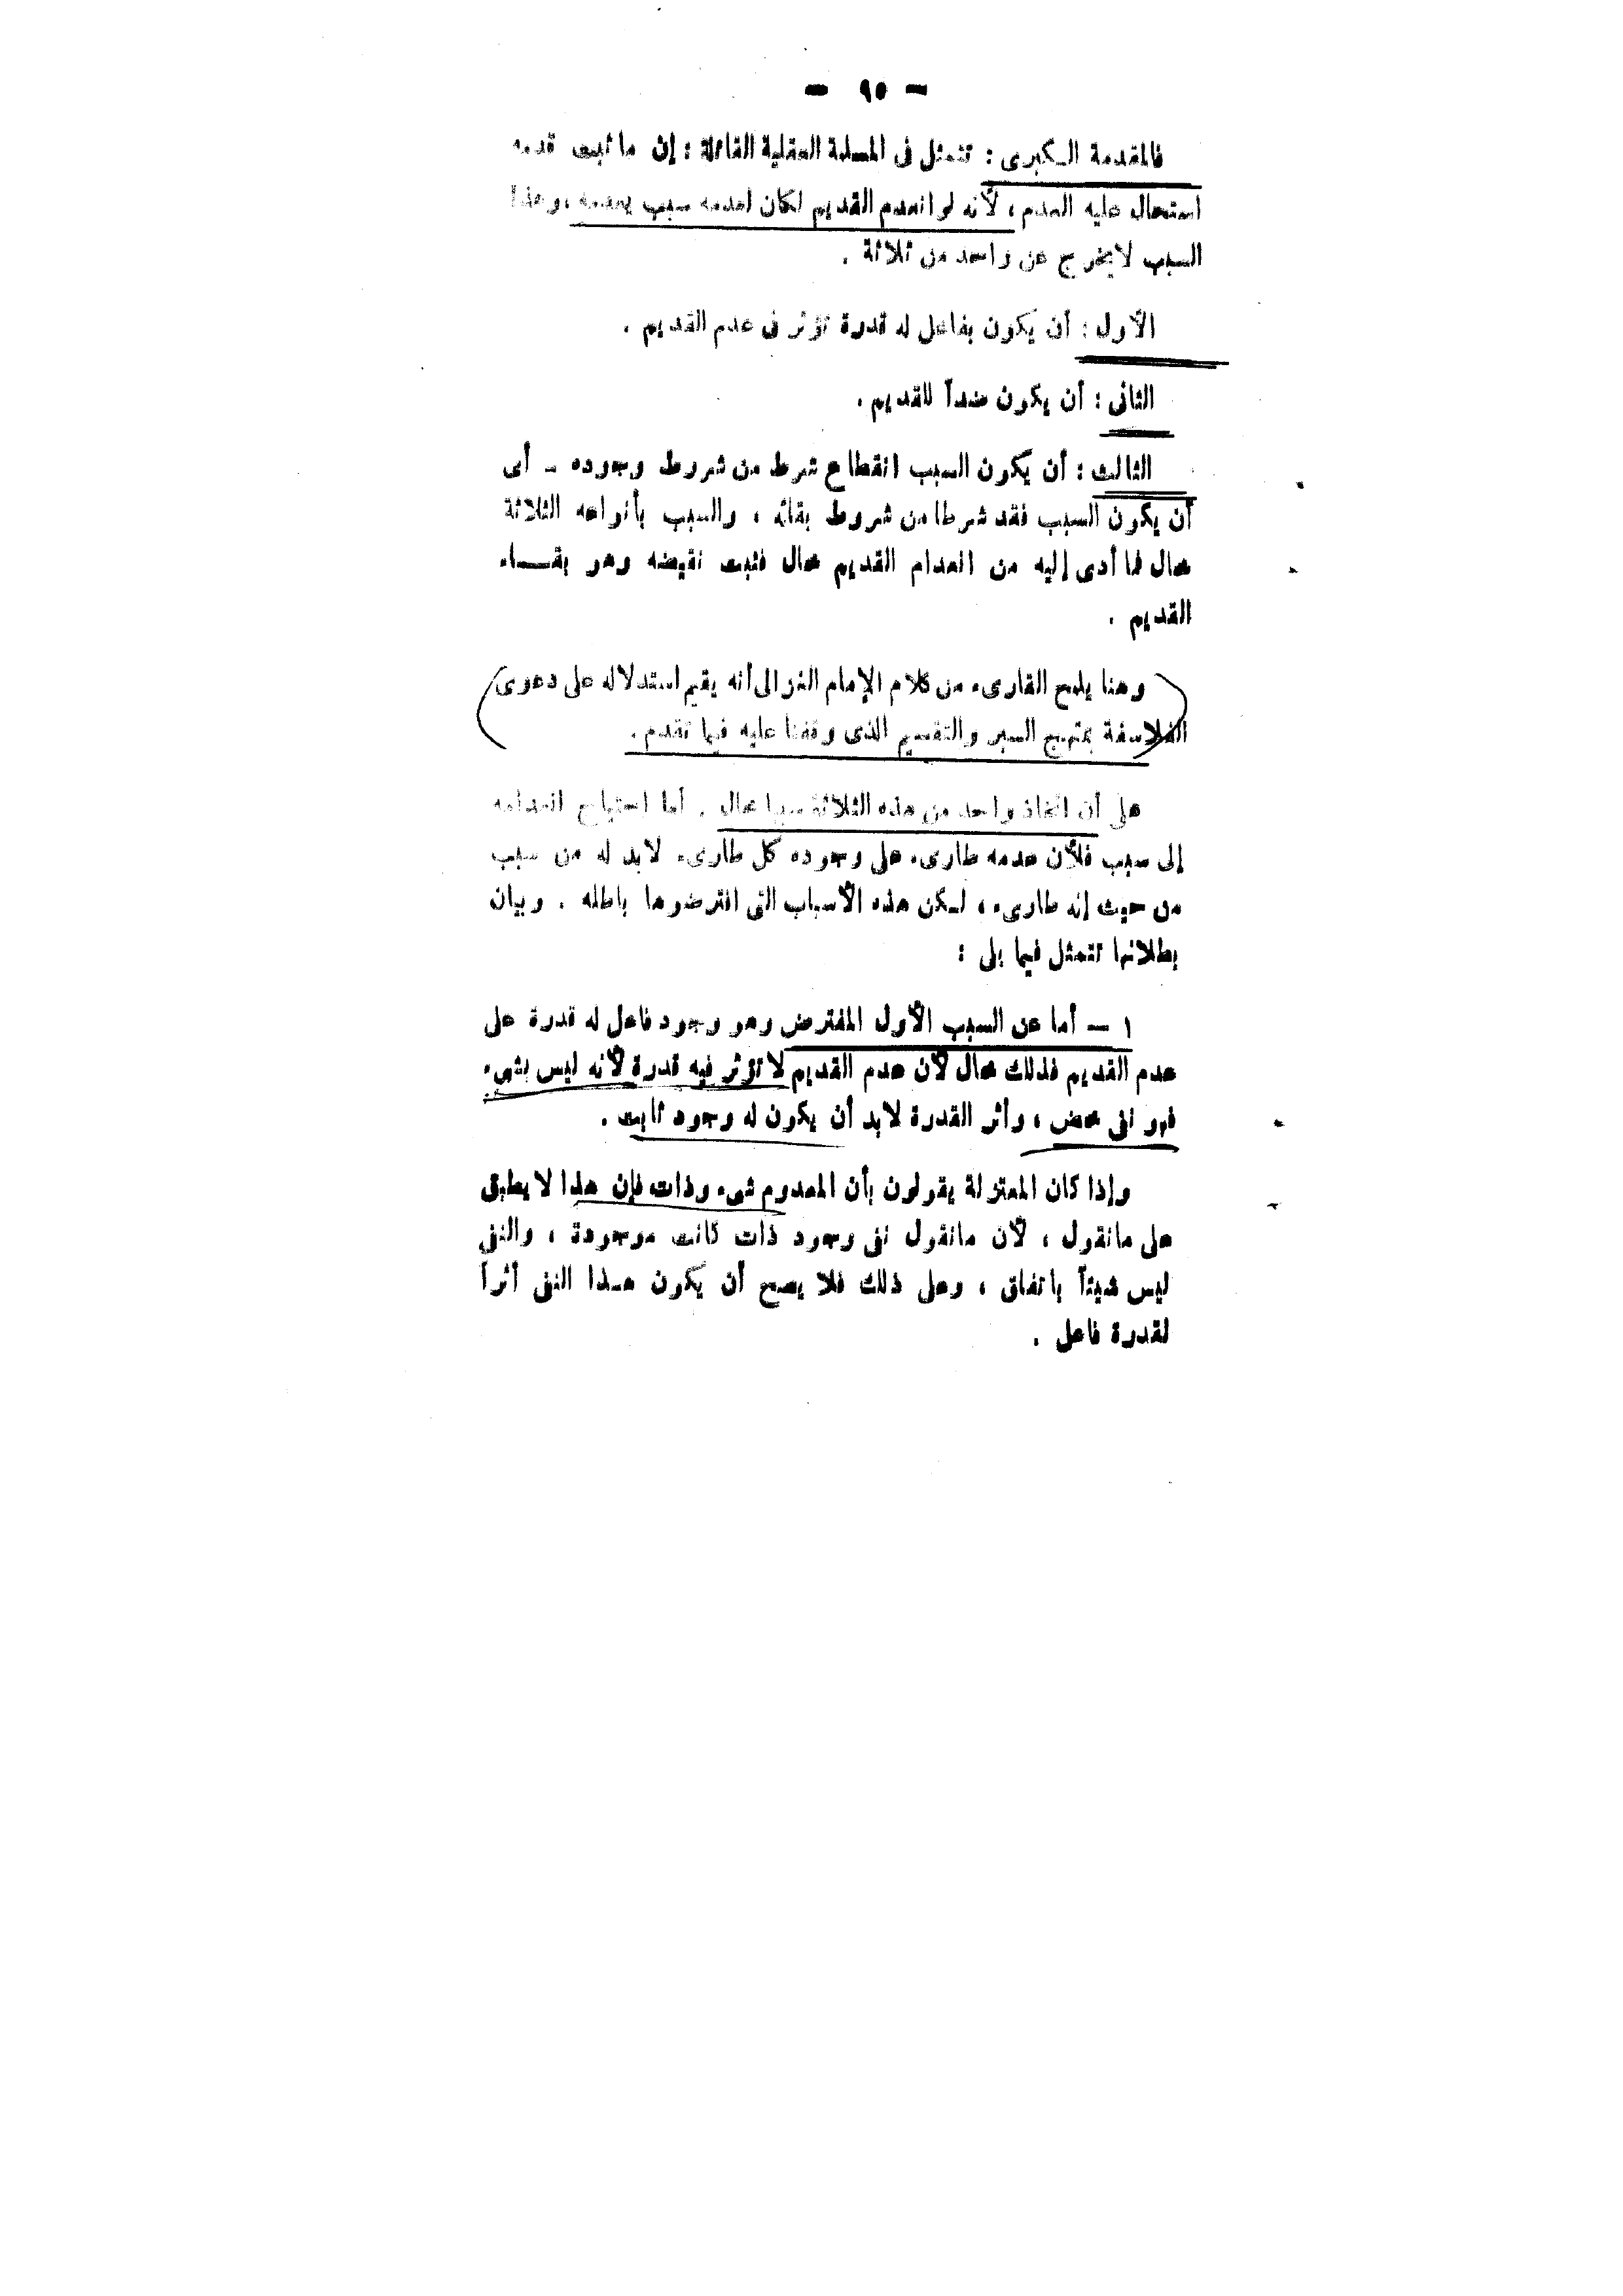 — ٩٥ —
فالمقدمة الكبرى : تتمثل فى المسلمة العقلية القائلة : إن ما ثبت قدمه
استحال عليه العدم ، لأنه لو انعدم القديم لكان لعدمه سبب يعدمه ، وهذا
السبب لا يخرج عن واحد من ثلاثة .
الأول : أن يكون بفاعل له قدرة تؤثر فى عدم القديم .
الثانى : أن يكون ضداً للقديم .
الثالث : أن يكون السبب انقطاع شرط من شروط وجوده ـ أى
أن يكون السبب فقد شرطا من شروط بقائه ، والسبب بأنواعه الثلاثة
محال فما أدى إليه من انعدام القديم محال فثبت نقيضه وهو بقـــاء
القديم .
وهنا يلمح القارىء من كلام الإمام الغزالى أنه يقيم استدلاله على دعوى
الفلاسفة بمنهج السبر والتقسيم الذى وقفنا عليه فيما تقدم .
على أن اتخاذ واحد من هذه الثلاثة سببا محال . أما احتياج انعدامه
إلى سبب فلأن عدمه طارىء على وجوده كل طارىء لابد له من سبب
من حيث إنه طارىء ، لـكن هذه الأسباب التى افترضوها باطله . وبيان
بطلانها تتمثل فيما يلى :
١ — أما عن السبب الأول المفترض وهو وجود فاعل له قدرة على
عدم القديم فذلك محال لأن عدم القديم لا تؤثر فيه قدرة لأنه ليس بشىء
فهو نفى محض ، وأثر القدرة لابد أن يكون له وجود ثابت .
وإذا كان المعتزلة يقولون بأن المعدوم شىء وذات فإن هذا لا يطبق
على مانقول ، لأن مانقول نفى وجود ذات كانت موجودة ، والنفى
ليس شيئاً باتفاق ، وعلى ذلك فلا يصح أن يكون هـذا النفى أثراً
لقدرة فاعل .